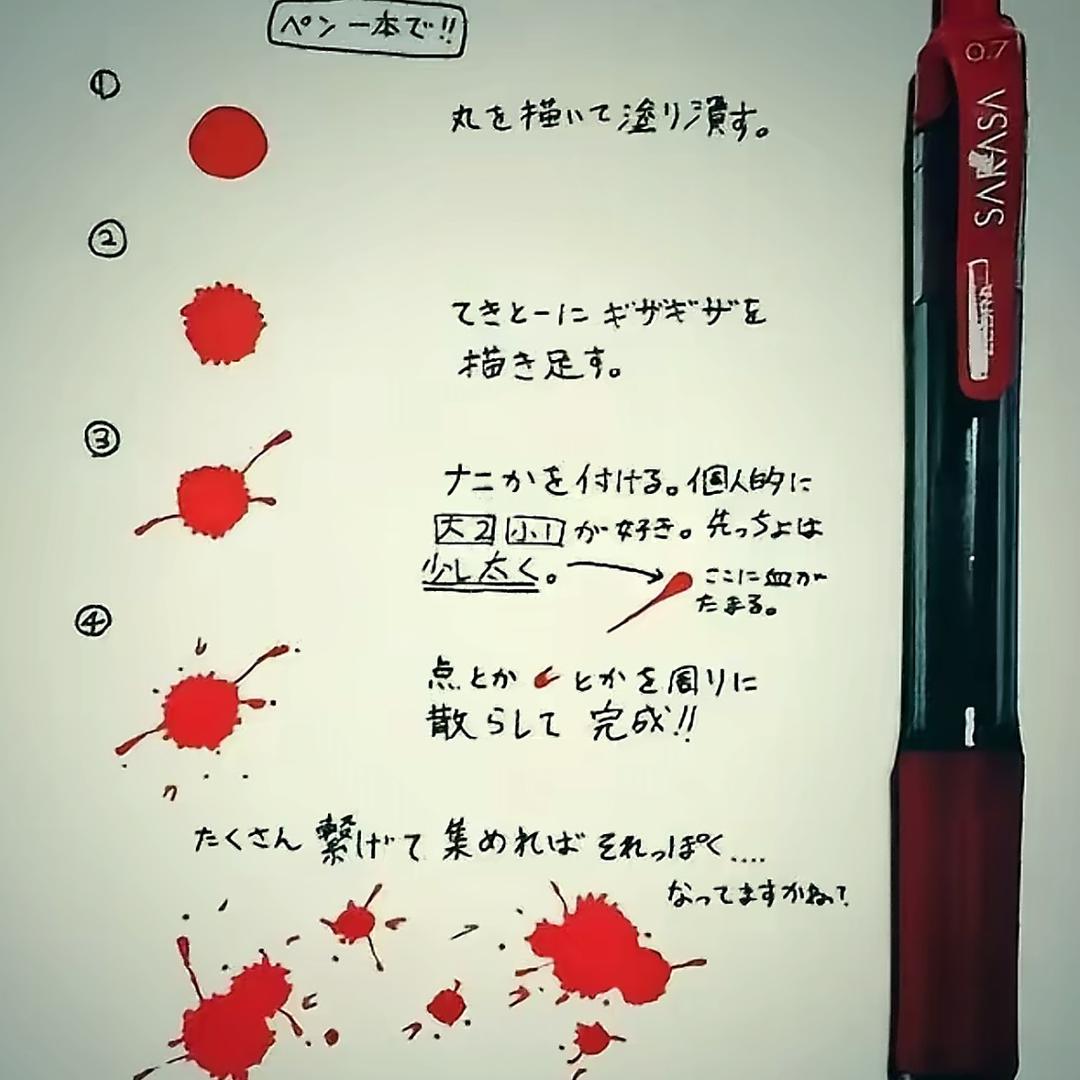 ペン一本で!!
①
丸を描いて塗り潰す。
②
てきとーにギザギザを
描き足す。
③
ナニかを付ける。個人的に
大2 小1 が好き。先っちょは
少し太く。
ここに血が
たまる。
④
点とか とかを周りに
散らして 完成!!
たくさん 繋げて 集めれば それっぽく....
なってますかね?
0.7
SARASA
ZEBRA